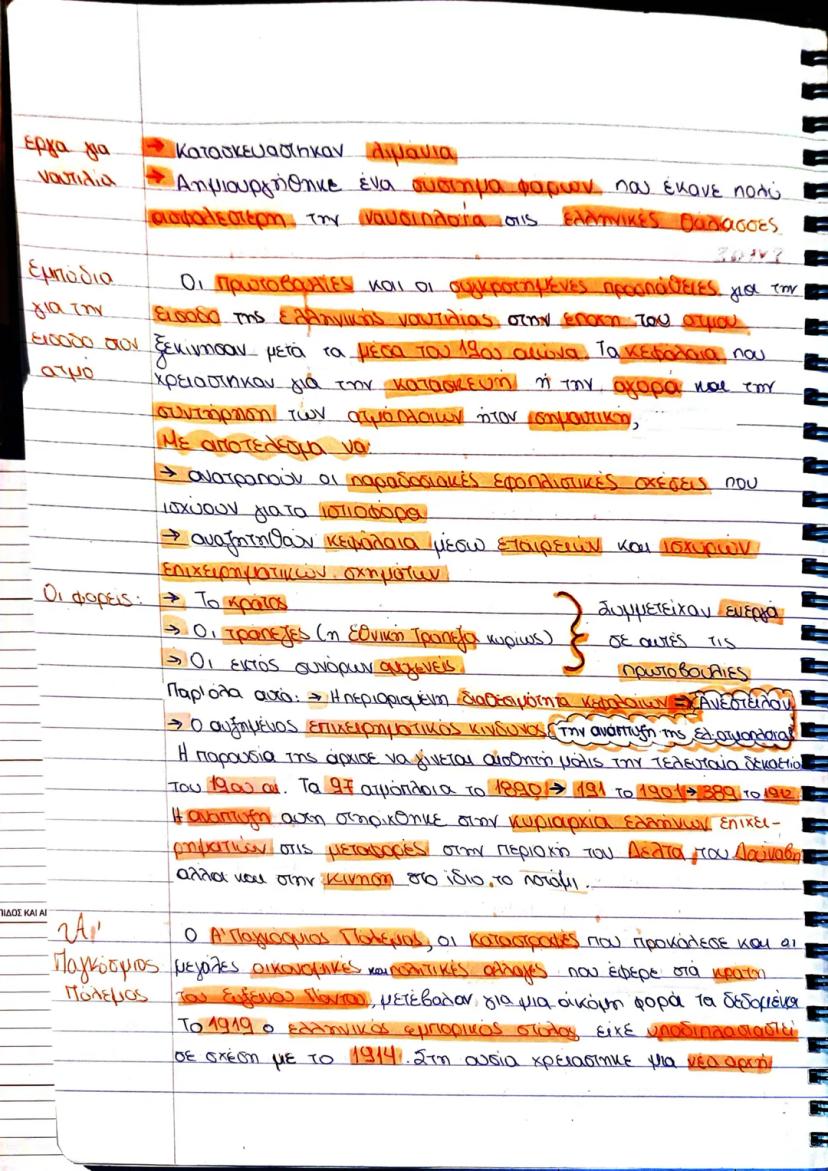 έργα για
ναυτιλία
→ Κατασκευάστηκαν λιμάνια
→ Δημιουργήθηκε ένα σύστημα φάρων που έκανε πολύ
ασφαλέστερη την ναυσιπλοΐα στις ελληνικές θάλασσες
Εμπόδια
για την
είσοδο στον
ατμό
Οι πρωτοβουλίες και οι συγκροτημένες προσπάθειες για την
είσοδο της ελληνικής ναυτιλίας στην εποχή του ατμού
ξεκίνησαν μετά τα μέσα του 19ου αιώνα. Τα κεφάλαια που
χρειάστηκαν για την κατασκευή ή την αγορά και την
συντήρηση των ατμόπλοιων ήταν σημαντική,
Με αποτέλεσμα να:
→ ανατραπούν οι παραδοσιακές εφοπλιστικές σχέσεις που
ισχύουν για τα ιστιοφόρα
→ αναζητηθούν κεφάλαια μέσω εταιρειών και ισχυρών
επιχειρηματικών σχημάτων
Οι φορείς:
→ Το κράτος
→ Οι τράπεζες (η Εθνική Τράπεζα κυρίως)
→ Οι εκτός συνόρων ομογενείς
Συμμετείχαν ενεργά
σε αυτές τις
πρωτοβουλίες
Παρ'όλα αυτά: → Η περιορισμένη διαθεσιμότητα κεφαλαίων ⇒ Ανέστειλαν
→ Ο αυξημένος επιχειρηματικός κίνδυνος την ανάπτυξη της ελ. ατμοπλοΐας
Η παρουσία της άρχισε να γίνεται αισθητή μόλις την τελευταία δεκαετία
του 19ου αι. Τα 97 ατμόπλοια το 1890 → 191 το 1901 → 389 το 1912
Η ανάπτυξη αυτή στηρίχθηκε στην κυριαρχία ελλήνων επιχει-
ρηματιών στις μεταφορές στην περιοχή του Δέλτα του Δούναβη
αλλά και στην κίνηση στο ίδιο το ποτάμι.
ΠΙΔΟΣ ΚΑΙ ΑΙ
Α'
Παγκόσμιος
Πόλεμος
Ο Α' Παγκόσμιος Πόλεμος, οι καταστροφές που προκάλεσε και οι
μεγάλες οικονομικές και πολιτικές αλλαγές που έφερε στα κράτη
του Ευξείνου Πόντου, μετέβαλαν για μια ακόμη φορά τα δεδομένα
Το 1919 ο ελληνικός εμπορικός στόλος είχε υποδιπλασιαστεί
σε σχέση με το 1914. Στη ουσία χρειάστηκε μια νέα αρχή